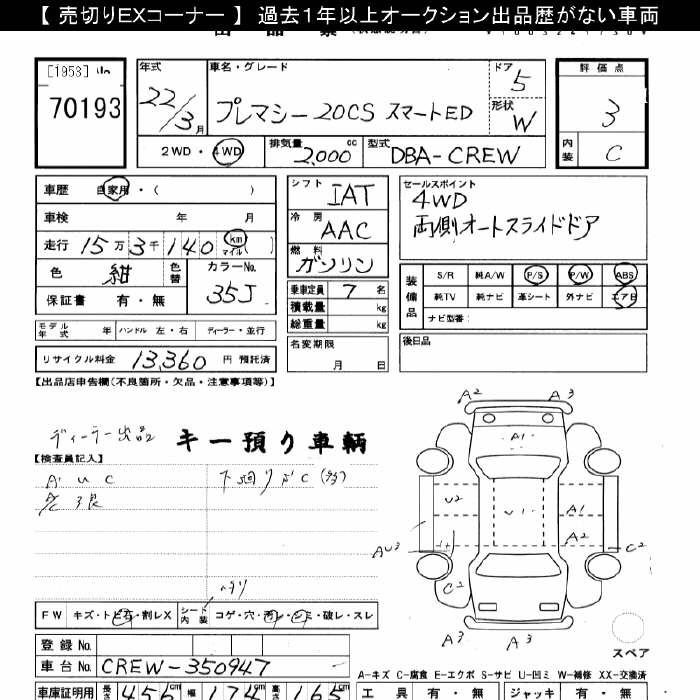 【 売切りEXコーナー 】 過去１年以上オークション出品歴がない車両
[1953]
70193
年式
22/3月
車名・グレード
プレマシー 20CS スマートED
ドア
5
形状
W
評価点
3
2WD・4WD
排気量
2,000 cc
型式
DBA-CREW
内装
C
車歴 自家用・( )
車検 年 月
走行 15万3千140 km マイル ( )
色 紺 色替
カラーNo.
35J
保証書 有・無
モデル年式 年 ハンドル 左・右 ディーラー・並行
リサイクル料金 13,360 円 預託済
シフト
IAT
冷房
AAC
燃料
ガソリン
乗車定員 7 名
積載量 kg
総重量 kg
名変期限
月 日
セールスポイント
4WD
両側オートスライドドア
装備品
S/R 純A/W P/S P/W ABS
純TV 純ナビ 革シート 外ナビ エアB
ナビ型番:
後日品
【出品店申告欄(不良箇所・欠品・注意事項等)】
ディーラー出品
キー預り車輌
【検査員記入】
AUC
下廻りサC(多)
ヘタリ
FW キズ・トビ石・割レX シート内装 コゲ・穴・汚レ・シミ・破レ・スレ
登録 No.
車台 No. CREW-350947
車庫証明用 長さ 456 cm 幅 174 cm 高さ 165 cm
A2
A3
A1
U2
U1
A1
A2
AU3
C2
C2
A3
A3
スペア
A-キズ C-腐食 E-エクボ S-サビ U-凹ミ W-補修 XX-交換済
工具 有・無 ジャッキ 有・無